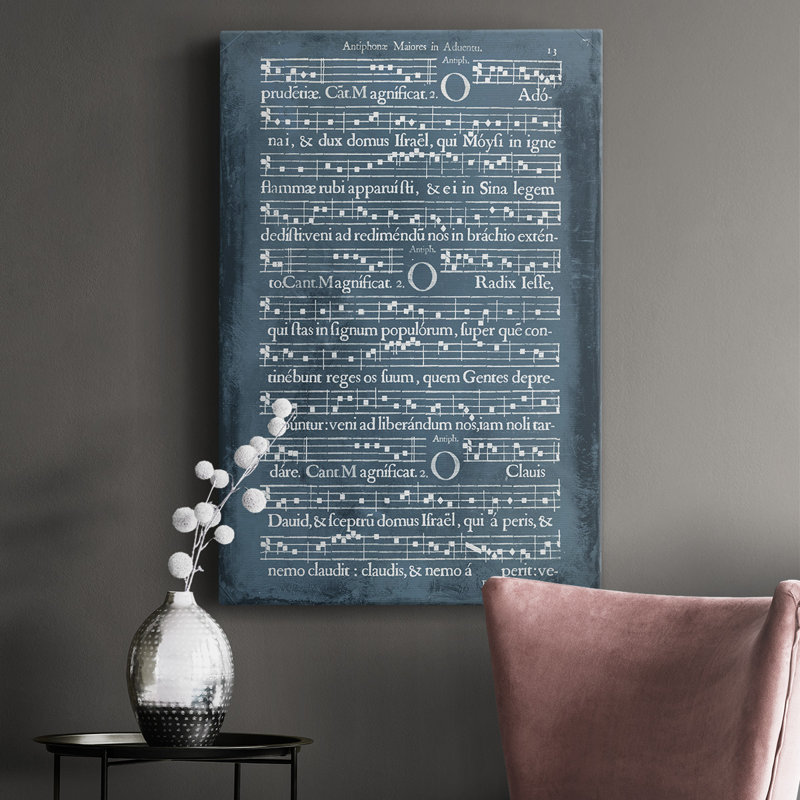 Antiphonæ Maiores in Aduentu. 13
Antiph.
prudẽtiæ. Cãt. Magníficat. 2. O Adó-
nai, & dux domus Iſraël, qui Móyſi in igne
flammæ rubi apparuíſti, & ei in Sina legem
dediſti: veni ad rediméndũ nos in bráchio extén-
Antiph.
to. Cant. Magníficat. 2. O Radix Ieſſe,
qui ſtas in ſignum populórum, ſuper quẽ con-
tinébunt reges os ſuum, quem Gentes depre-
untur: veni ad liberándum nos, iam noli tar-
Antiph.
dáre. Cant. Magníficat. 2. O Clauis
Dauid, & ſceptrũ domus Iſraël, qui áperis, &
nemo claudit: claudis, & nemo áperit: ve-